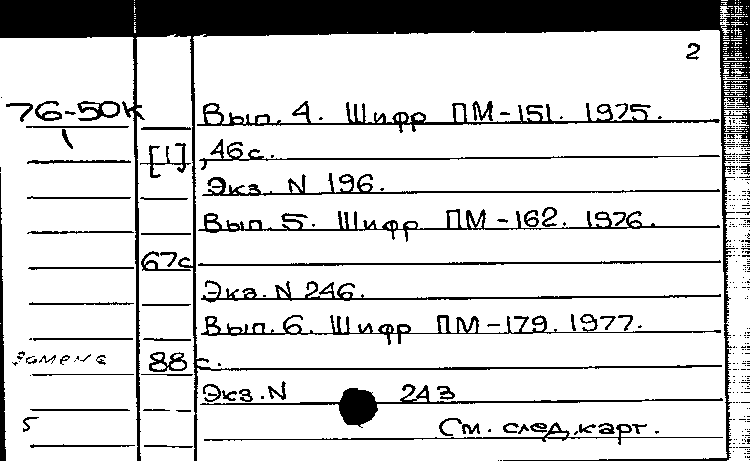 2
76-50к Вып. 4. Шифр ПМ-151. 1975.
1
[1], 46с.
Экз. N 196.
Вып. 5. Шифр ПМ-162. 1976.
67с
Экз. N 246.
Вып. 6. Шифр ПМ-179. 1977.
замена 88 с.
Экз. N 243
5 См. след. карт.